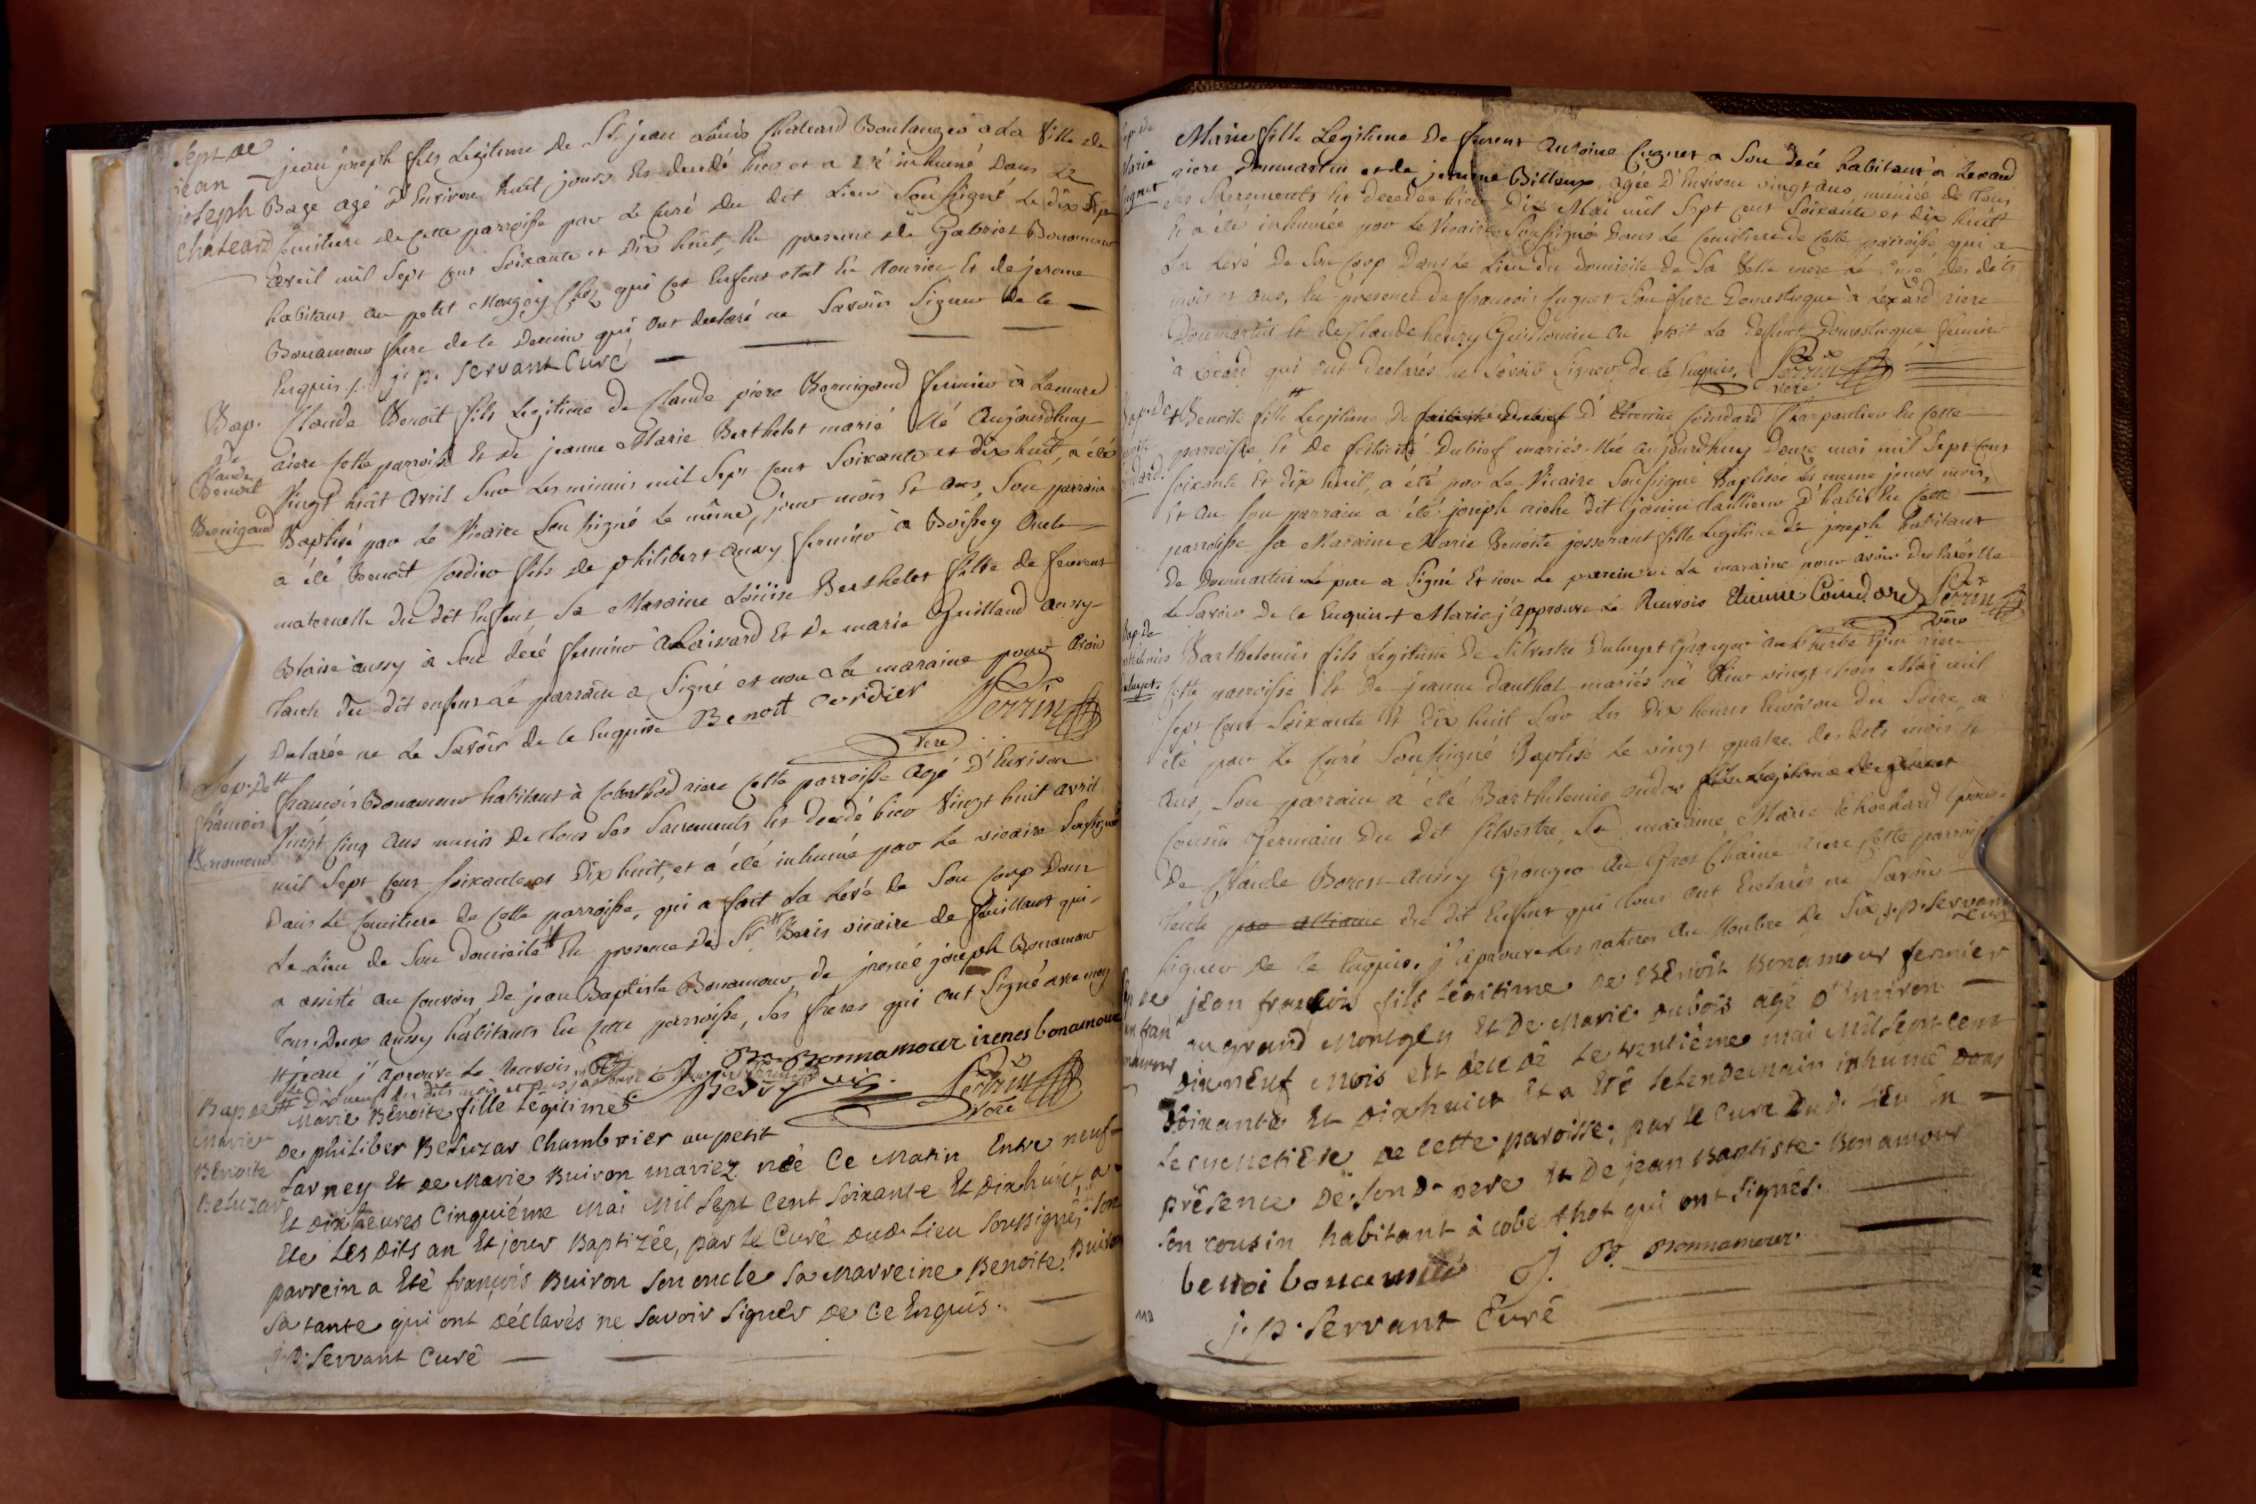 Sept. de
jean
joseph
Chateard
jean joseph fils Legitime de Sr. jean Louis Chateard Boulanger a La Ville de
Bage agé d'Environ huit jours Est decedé hier et a Eté inhumé Dans Le
Cimitiere de cette parroisse par Le Curé du dit Lieu Soussigné Le dix Sept
avril mil Sept Cent Soixante et dix huit, En presence de Gabriel Bonamour
habitant au petit Mongoy Chez qui cet Enfent etoit En Nourice Et de jerome
Bonamour frere de le Dernier qui ont declaré ne Savoir Signer de ce
Enquis. j. p. Servant Curé
Bap.
de
Claude
Benoit
Bernigaud
Claude Benoit fils Legitime de Claude piere Bernigaud fermier à Lamure
riere Cette parroisse Et de jeanne Marie Berthelot marié Né Aujourdhuy
Vingt huit Avril Sur Les minuit mil Sept Cent Soixante et dix huit, a été
Baptisé par Le Vicaire Soussigné Le même, jour mois Et ans, Son parrain
a été Benoit Cordier fils de philibert aussy fermier à Boissey Oncle
maternelle Du dit Enfent Sa Maraine Loüise Berthelot fille de feurent
Blaise aussy à Son decé fermier à Laisard Et de marie Guilland aussy
tante du dit enfent Le parrain a Signé et non La maraine pour avoir
Declarée ne Le Savoir de ce Enquise Benoit Cordier Perrin
vere
Sep. de
françois
Bonamour
françois Bonamour habitant à Coberthod riere Cette parroisse agé D'Environ
Vingt Cinq ans munis De tous Ses Sacrements Est decedé hier Vingt huit avril
mil Sept Cent soixante et Dix huit, et a été inhumé par Le vicaire Soussigné
Dans Le Cimitiere de Cette parroisse, qui a fait La Levé de Son Corp Dans
Le Lieu de Son Domicile En presence de Sr Beris vicaire de feuillant qui
a assisté au Convois De jean Baptiste Bonamour, de jrenée joseph Bonamour
Tous Deux aussy habitants En Cette parroisse, Ses freres qui ont Signé avec moy
jean j'aprouve Le Renvois
J. B. Bonnamour irenes bonamour
Perrin
vere
Bap de
Marie
Benoite
Beluzar
Marie Benoite fille Légitime
De philiber Beluzar Chambrier au petit
Sarney Et de Marie Buiron mariez née Ce Matin Entre neuf
Et dix heures Cinquiéme Mai Mil Sept Cent Soixante Et dix huict, a
Eté Les Dits an Et jour Baptizée, par le Curé dud. Lieu Soussigné, Son
parrein a Eté françois Buiron Son oncle Sa Marreine Benoite Buiron
Sa tante qui ont déclarés ne Savoir Signer de Ce Enquis.
j. p. Servant Curé
Sep. de
Marie
Cugnet
Marie fille Legitime De feurent Antoine Cugnet a Son decé habitant à Lexard
riere Dommartin et de jeanne Billoux, agée D'Environ vingt ans, muniée de Tous
Ses Sacrements Est decedée hier Dix Mai mil Sept cent Soixante et dix huit
Et a été inhumée par Le Vicaire Soussigné Dans Le Cimitiere de Cette parroisse qui a
La Levé De Son Corp Dans Le Lieu du domicile de Sa Belle mere Le des dits
mois et ans, En presence de françois Cugnet Son frere Domestique à Lexard riere
Dommartin Et de Claude henry Guillomin ou etoit La Defunt Domestique fermier
à Lecard qui ont Declarés ne Savoir Signer de ce Enquis. Perrin
vere
Benoite fille Legitime De D'Etienne Coindard Charpantier En Cette
parroisse Et De felicité Dubief mariés Née aujourdhuy Douze mai mil Sept Cent
Soixante Et Dix huit, a été par Le Vicaire Soussigné Baptisée Les meme jour mois,
Et an Son parrain a été joseph dit janin Tailleur D'habit En Cette
parroisse Sa Maraine Marie Benoite josserant fille Legitime de joseph habitant
De Dommartin Le pere a Signé Et non Le parrain ni La maraine pour avoir Declarés Ne
Le Savoir De Ce Enquis + Marie j'approuve Le Renvois Etienne Coindard Perrin
vere
Bap. de
Barthelemis fils Legitime De Silvestre Granger aux riere
Cette parroisse Et De jeanne Dauthal mariés né hier vingt trois Mai mil
Sept Cent Soixante Et Dix huit Sur Les Dix heures Environ Du Soire, a
été par Le Curé Soussigné Baptisé Le vingt quatre des dits mois Et
ans, Son parrain a été Barthelemis
Cousin Germain Du Dit Silvestre, Sa maraine Marie
De Claude Boron aussy Granger Au Gros Chaine riere Cette parroisse
Tante du dit Enfent qui tous ont Declarés ne Savoir
Signer de ce Enquis. j'aprouve Les ratures Au Nombre De Six j. p. Servant
Curé
jean françois fils Légitime De Benoit Bonamour fermier
au grand Mongley Et De Marie Dubois agé d'Environ
Dix neuf Mois Est décédé Le trentiéme Mai Mil Sept cent
Soixante Et dix huict Et a Eté Le Lendemain inhumé Dans
Le Cimetiere de cette paroisse, par Le Curé Dud. Lieu En
présence De Son d. pere Et De jean Baptiste Bonamour
Son cousin habitant à cobethot qui ont Signés.
benoi bonamour J. B. Bonnamour.
j. p. Servant Curé